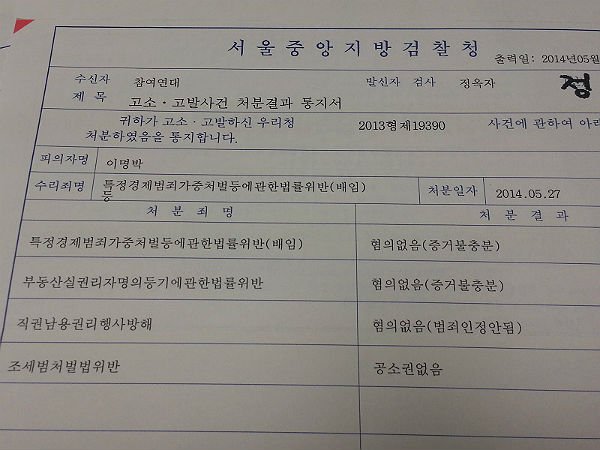 서울중앙지방검찰청
출력일: 2014년05월
수신자 참여연대 발신자 검사 정옥자 정
제 목 고소·고발사건 처분결과 통지서
귀하가 고소·고발하신 우리청 2013형제19390 사건에 관하여 아래
처분하였음을 통지합니다.
피의자명 이명박
수리죄명 특정경제범죄가중처벌등에관한법률위반(배임) 등 처분일자 2014.05.27
처 분 죄 명 처 분 결 과
특정경제범죄가중처벌등에관한법률위반(배임) 혐의없음(증거불충분)
부동산실권리자명의등기에관한법률위반 혐의없음(증거불충분)
직권남용권리행사방해 혐의없음(범죄인정안됨)
조세범처벌법위반 공소권없음